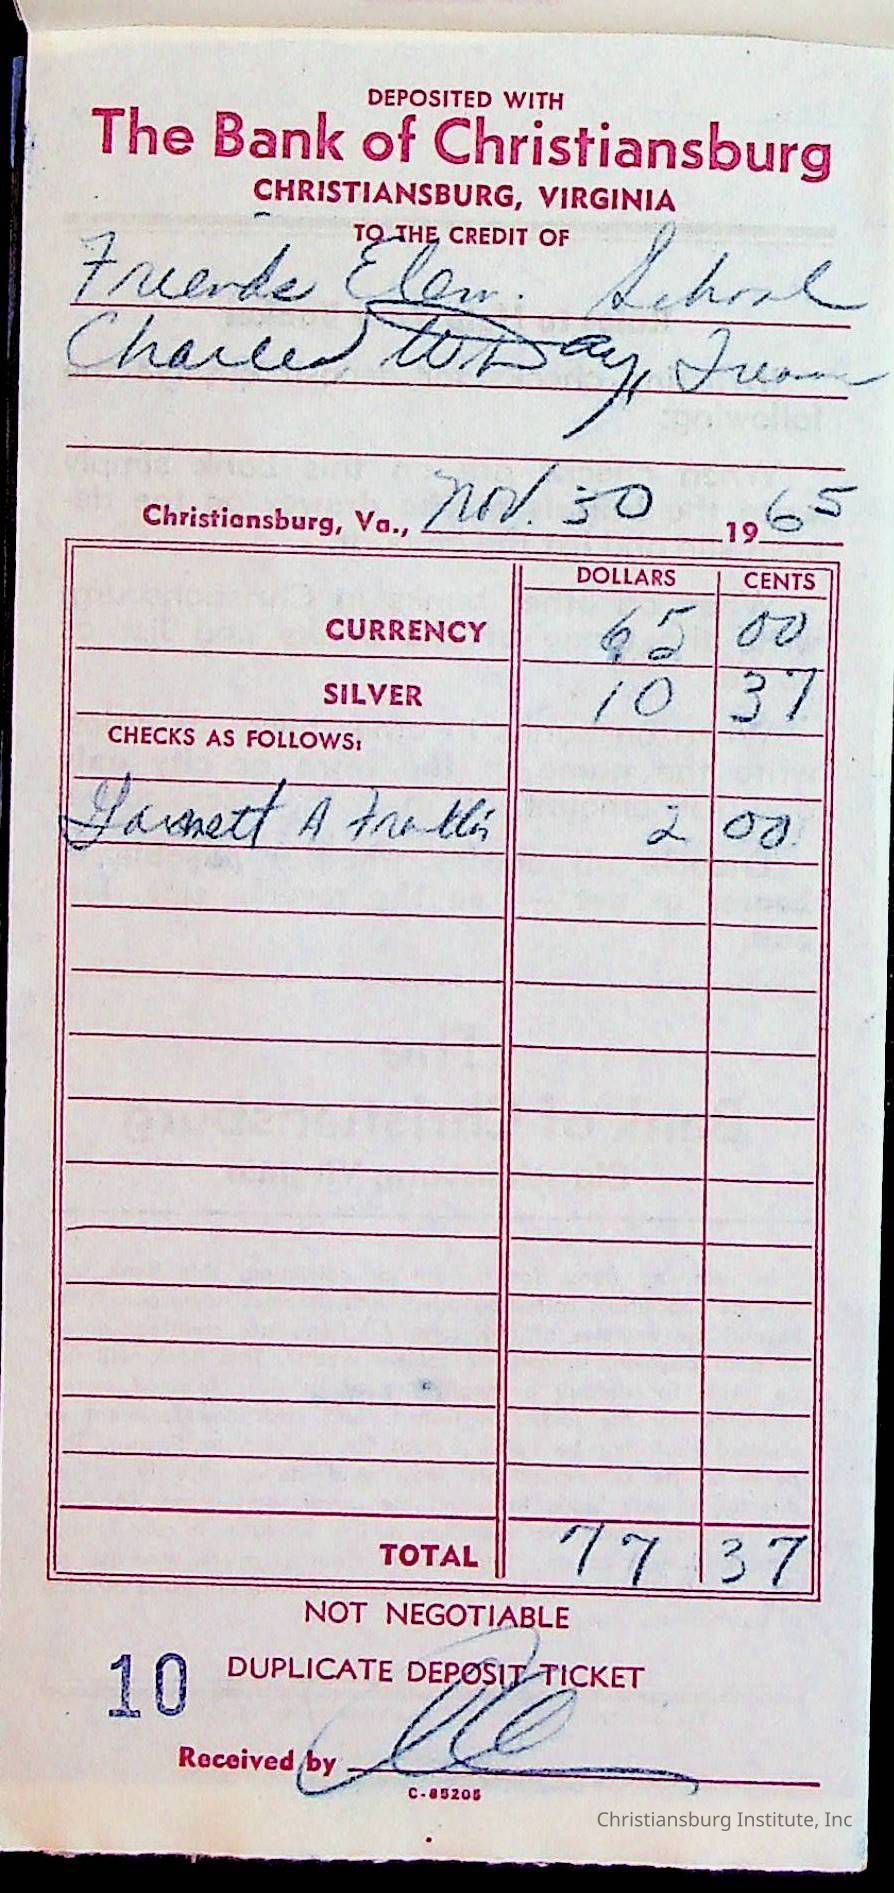 DEPOSITED WITH
The Bank of Christiansburg
CHRISTIANSBURG, VIRGINIA
TO THE CREDIT OF
Friends Elem. School
Charles W. Day, Treas
Christiansburg, Va., Nov. 30 1965
DOLLARS CENTS
CURRENCY 65 00
SILVER 10 37
CHECKS AS FOLLOWS:
Garnett A Franklin 2 00
TOTAL 77 37
NOT NEGOTIABLE
10 DUPLICATE DEPOSIT TICKET
Received by
C-85205
Christiansburg Institute, Inc